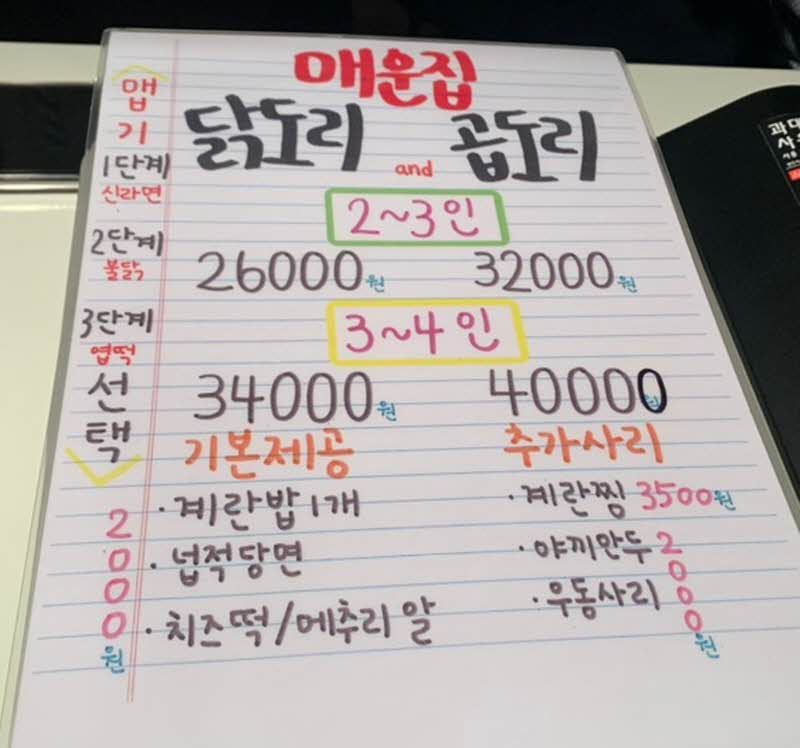 매운집
닭도리 and 곱도리
2~3인
26000원 32000원
3~4인
34000원 40000원
기본제공 추가사리
·계란밥 1개 ·계란찜 3500원
·넙적당면 ·야끼만두 2000원
·치즈떡/메추리알 ·우동사리
맵기
1단계
신라면
2단계
불닭
3단계
엽떡
선택
2000원
과대